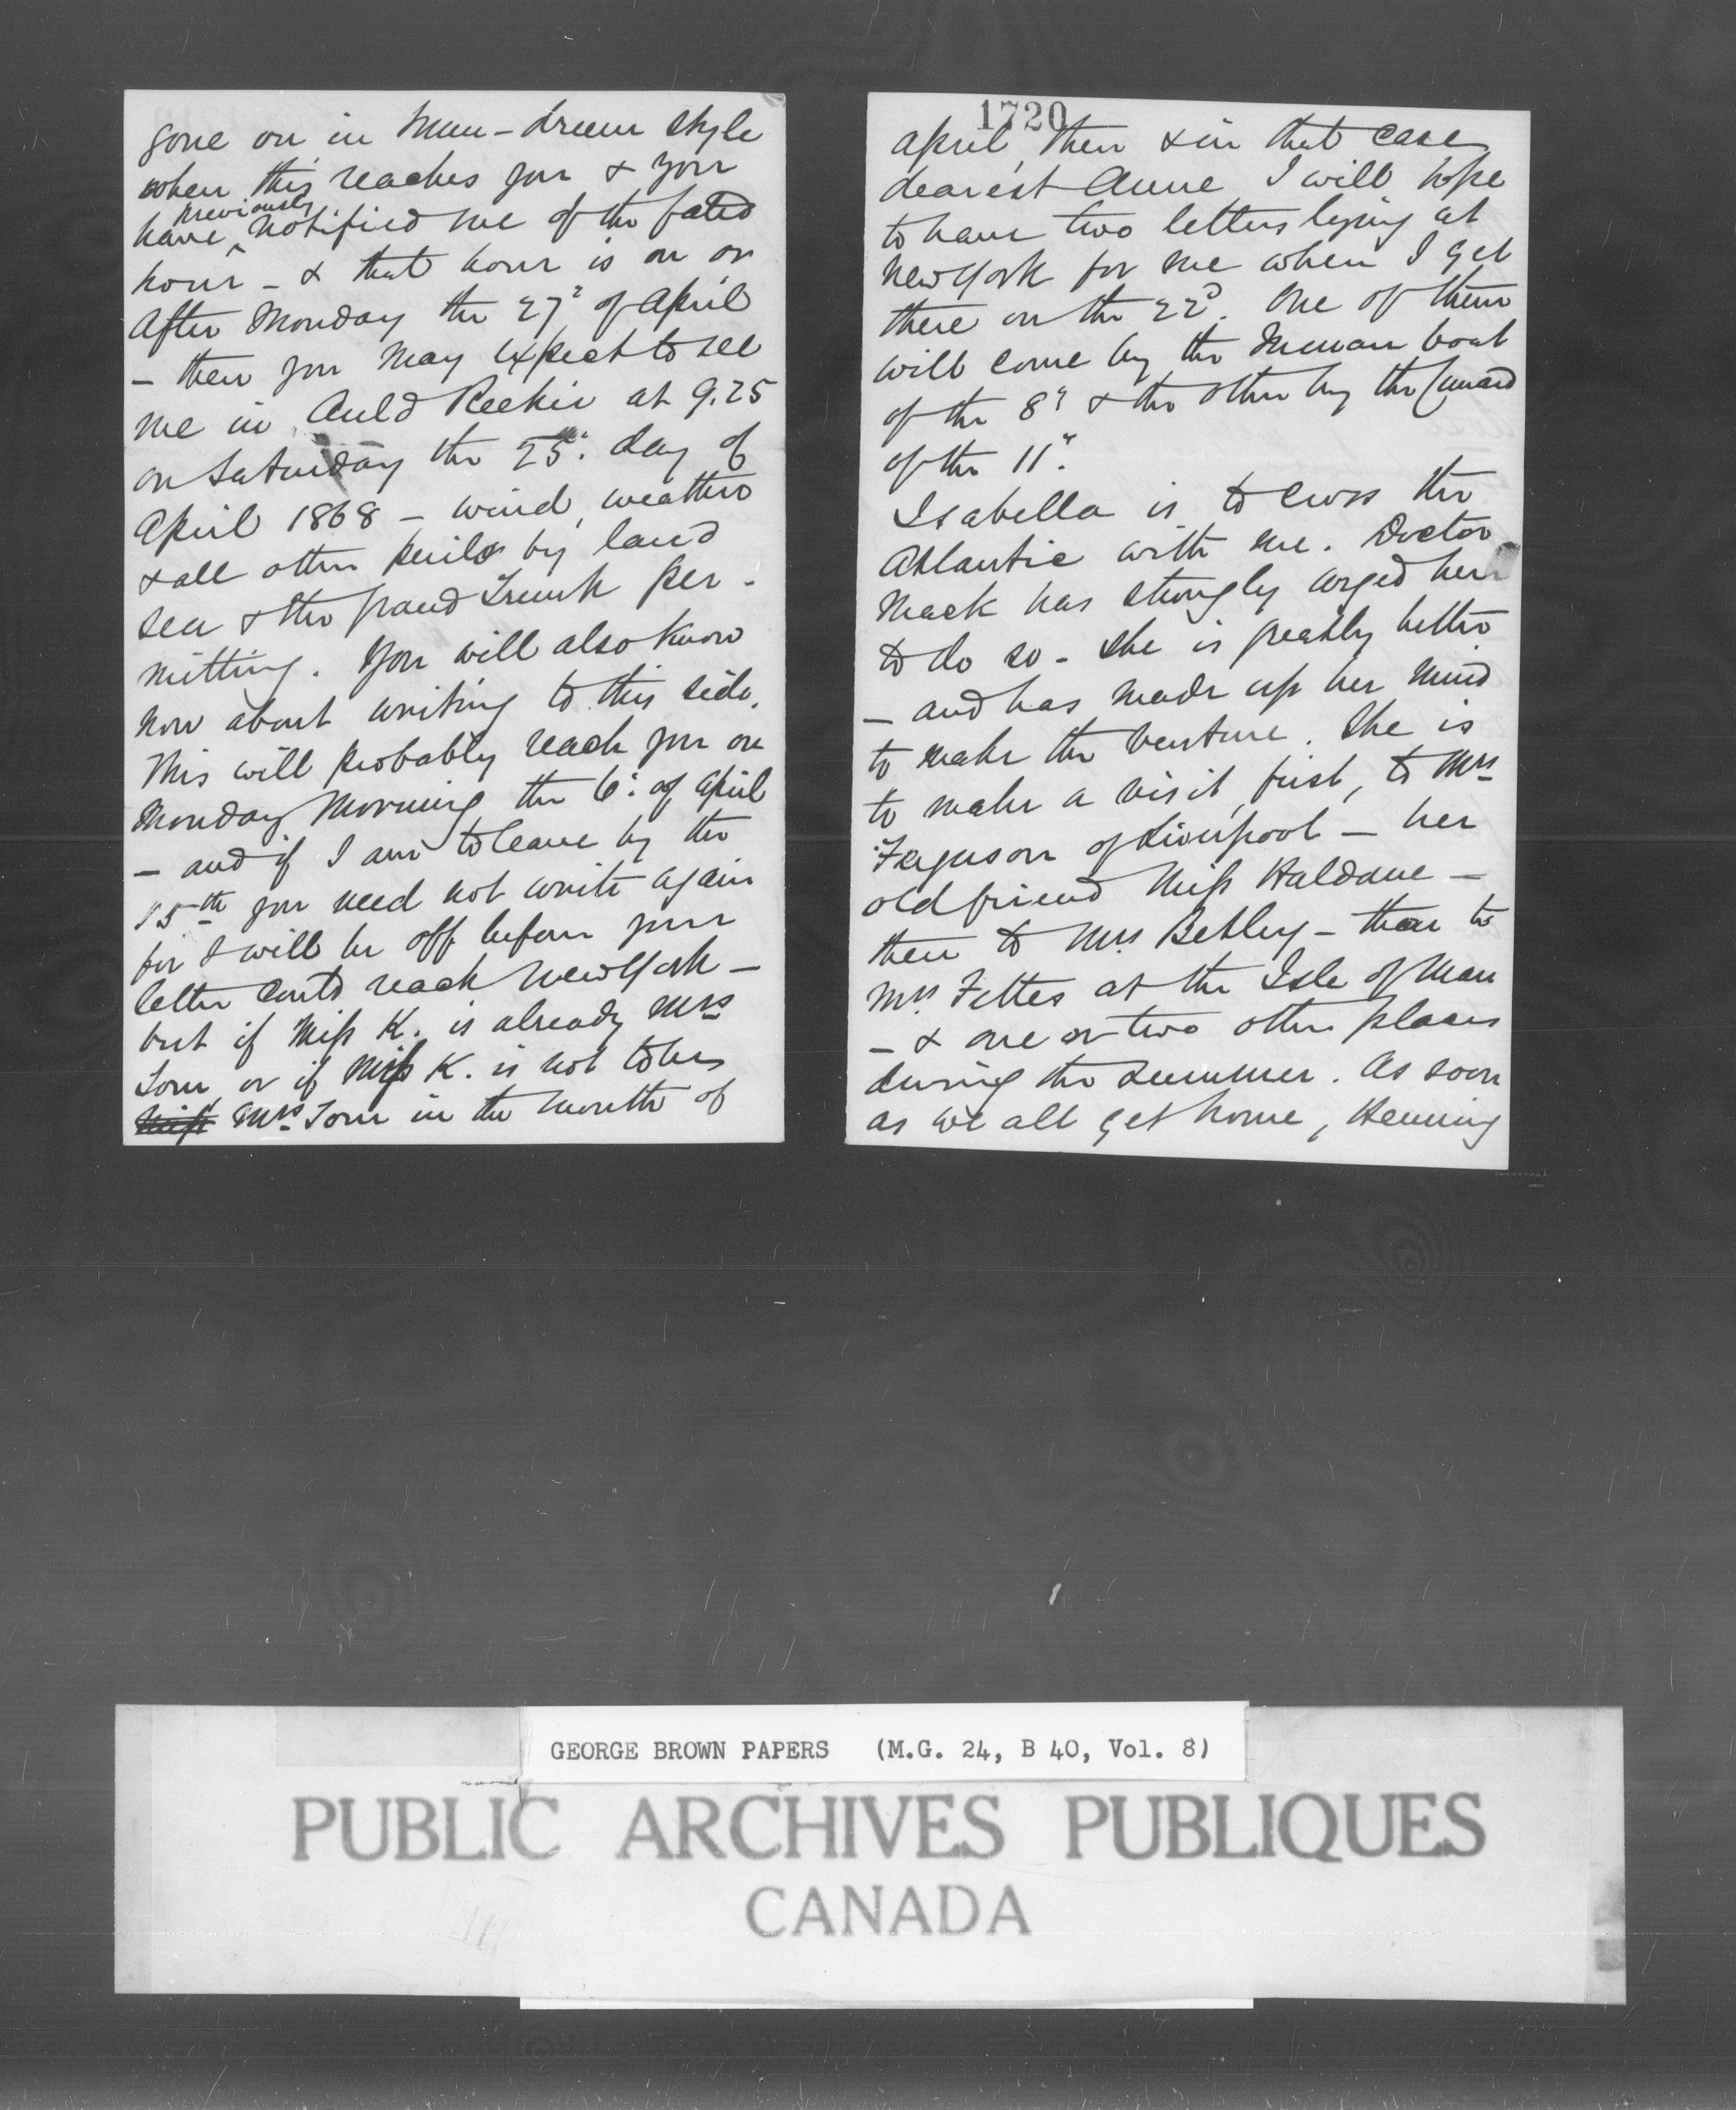 gone on in hum-drum style
when this reaches you & you
have previously notified me of the fated
hour - & that hour is on or
after Monday the 27" of April
- then you may expect to see
me in Auld Reekie at 9.25
on Saturday the 25" day of
April 1868 - wind, weather
& all other perils by land
sea & the Grand Trunk per-
mitting. You will also know
now about writing to this side.
This will probably reach you on
Monday Morning the 6" of April
- and if I am to leave by the
15th you need not write again
for I will be off before your
letter could reach New York -
but if Miss K. is already Mrs
Tom, or if Miss K. is not to be
Miss Mrs Tom in the month of
1720
April, then & in that case
dearest Anne I will hope
to have two letters lying at
New York for me when I get
there on the 22d. One of them
will come by the Inman boat
of the 8" & the other by the Cunard
of the 11".
Isabella is to cross the
Atlantic with me. Doctor
Mack has strongly urged her
to do so - She is greatly better
- and has made up her mind
to make the venture. She is
to make a visit, first, to Mrs
Ferguson of Liverpool - her
old friend Miss Haldane -
then to Mrs Betley - then to
Mrs Fettes at the Isle of Man
- & one or two other places
during the summer. As soon
as we all get home, Henning
GEORGE BROWN PAPERS (M.G. 24, B 40, Vol. 8)
PUBLIC ARCHIVES PUBLIQUES
CANADA